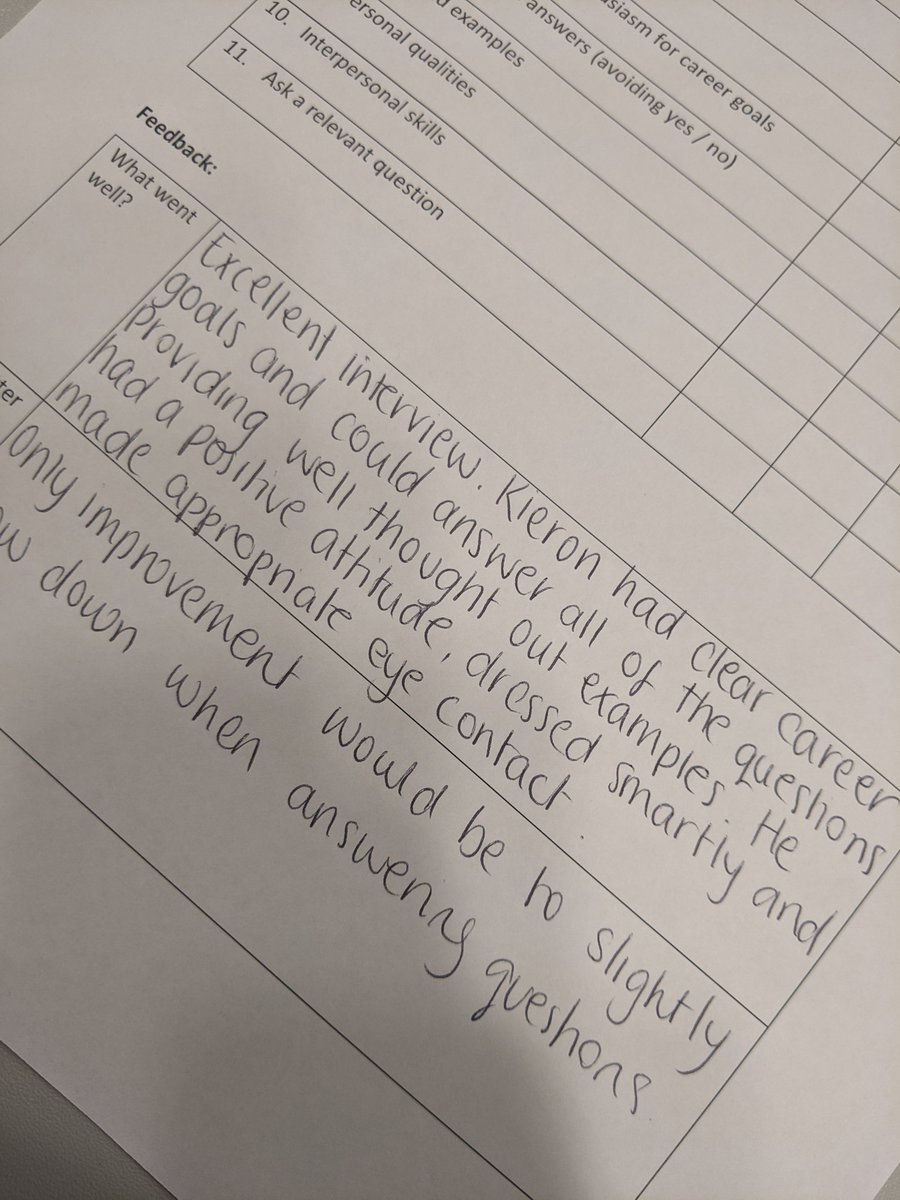 usiasm for career goals
answers (avoiding yes / no)
examples
ersonal qualities
10. Interpersonal skills
11. Ask a relevant question
Feedback:
What went
well?
Excellent interview. Kieron had clear career
goals and could answer all of the questions
providing well thought out examples. He
had a positive attitude, dressed smartly and
made appropriate eye contact.
ter
only improvement would be to slightly
ow down when answering questions